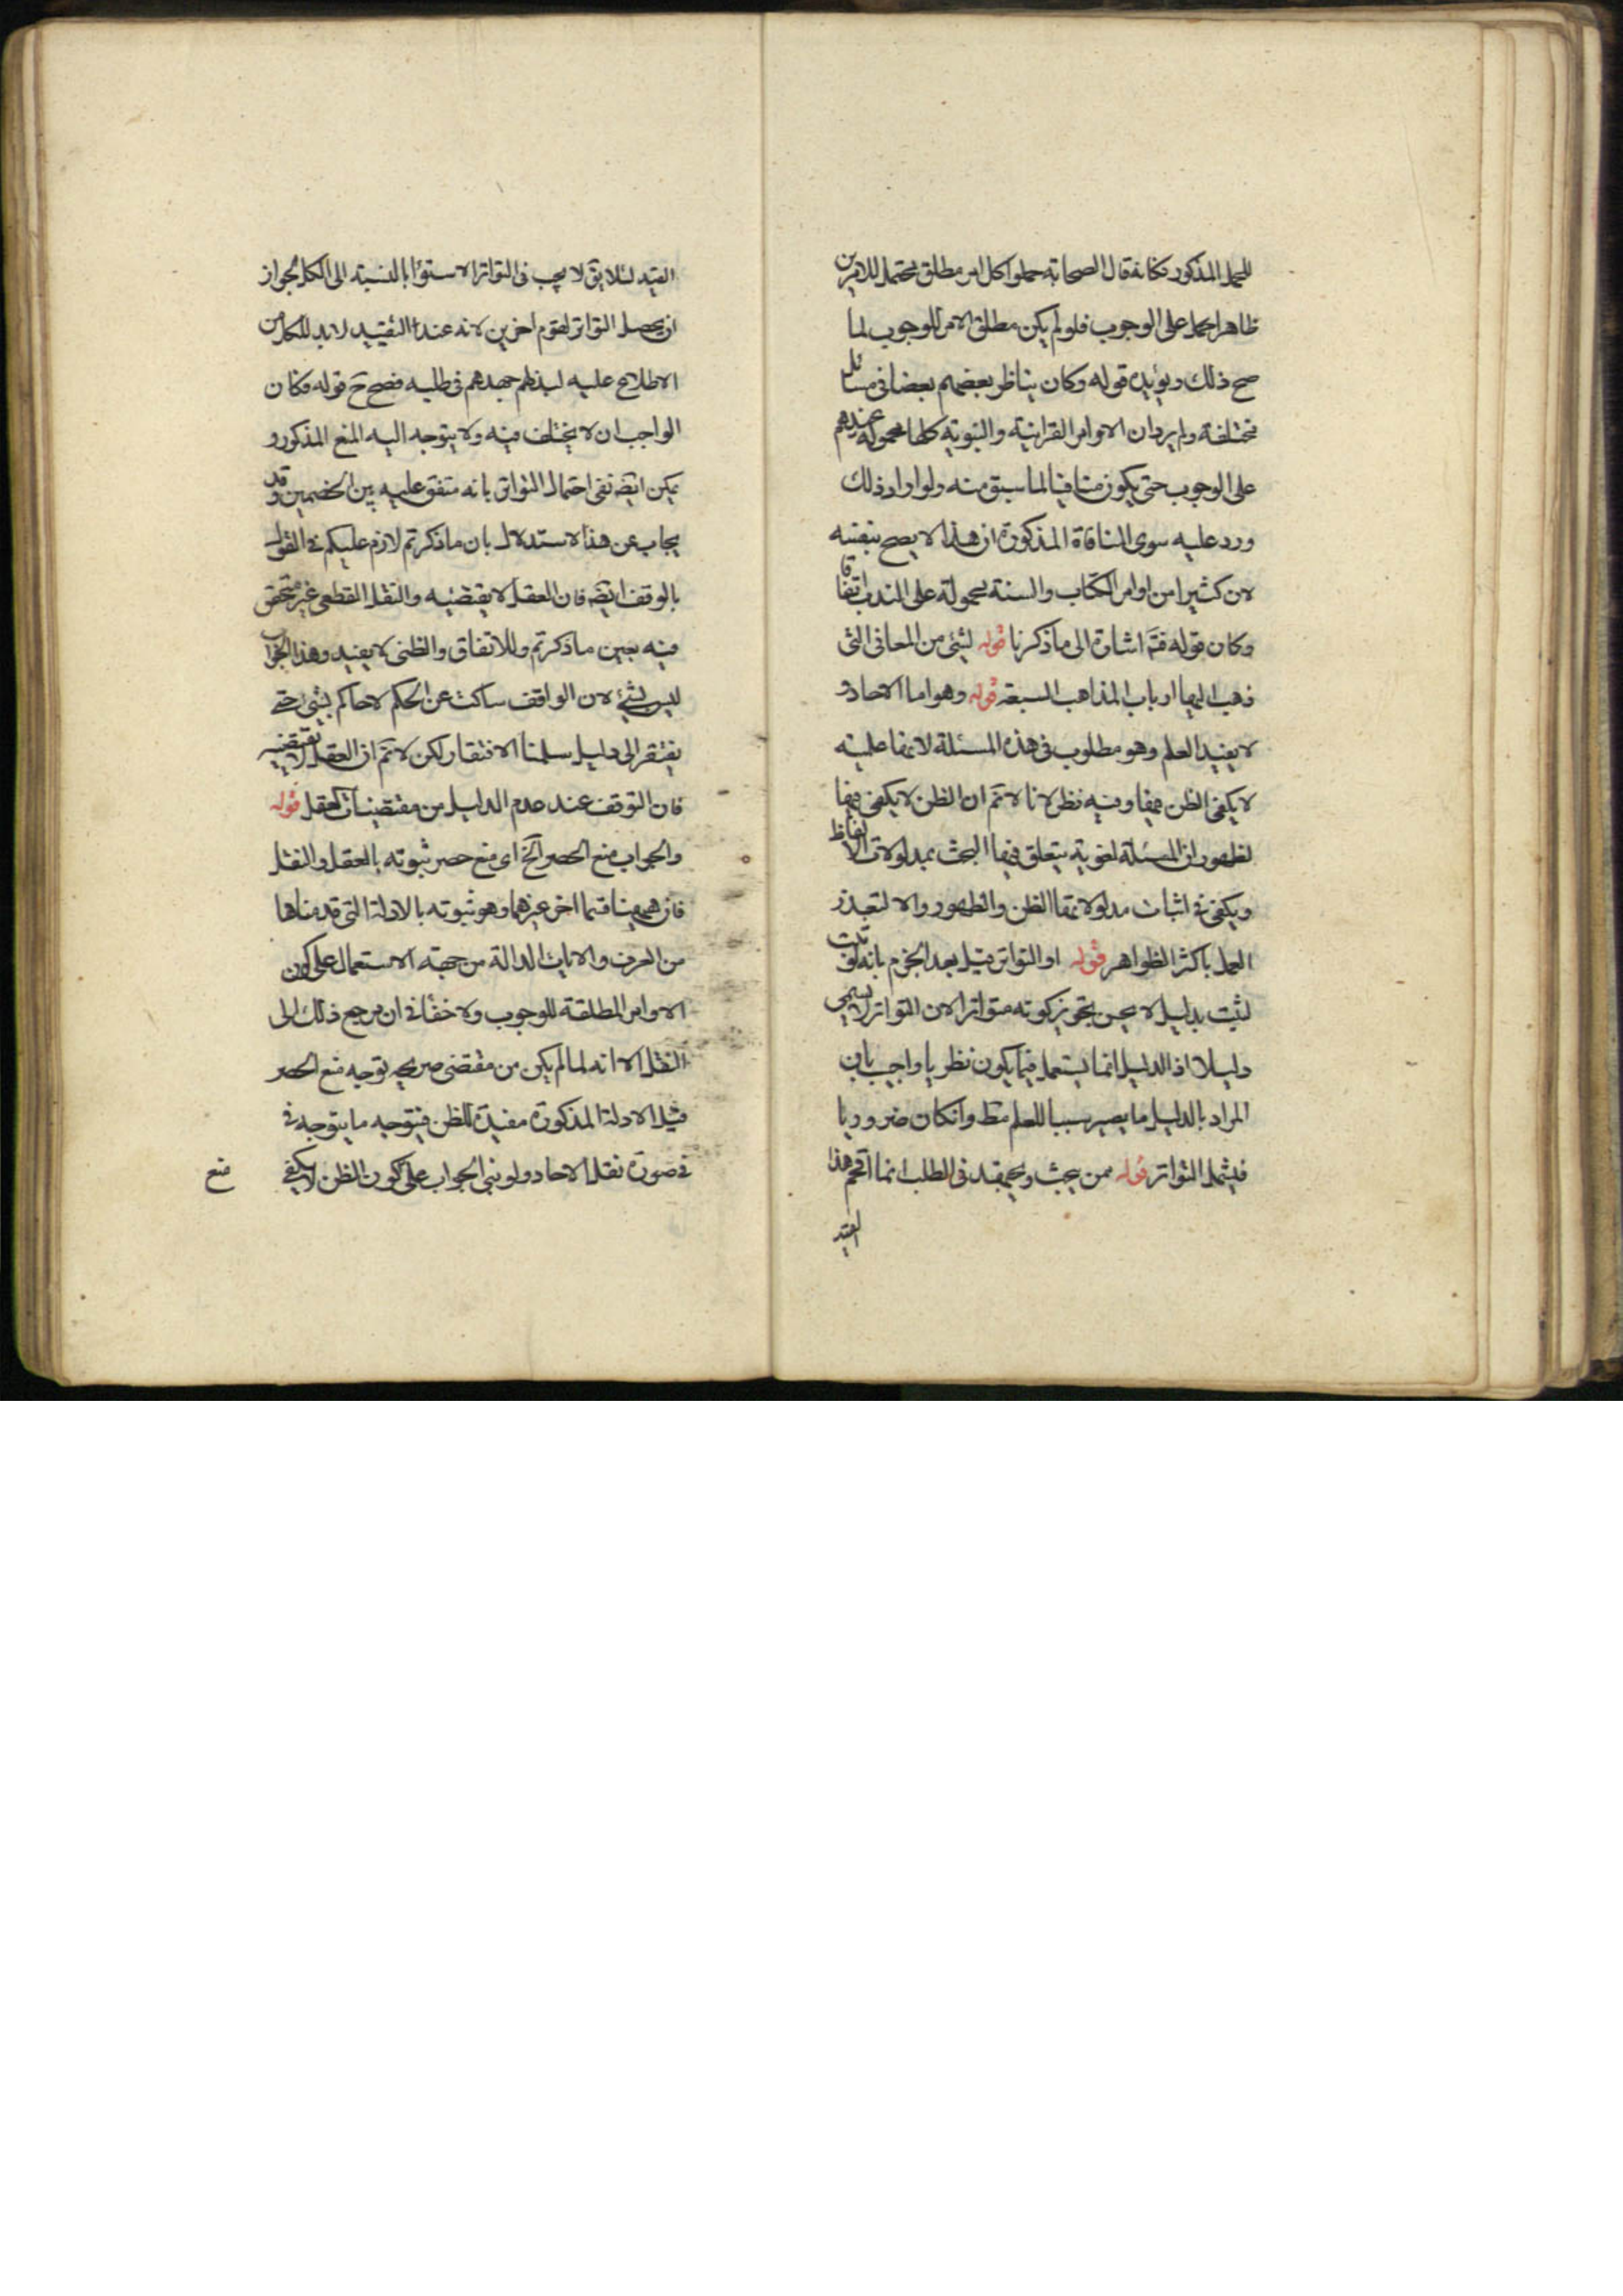 للحمل المذكور فكانه قال الصحابة حملوا كل امر مطلق محتمل للامرين
ظاهرا حمل على الوجوب فلو لم يكن مطلق الامر للوجوب لما
صح ذلك ويؤيده قوله وكان يناظر بعضهم بعضا فى مسائل
مختلفة ولم يرد ان الاوامر القرانية والنبوية كلها محمولة عندهم
على الوجوب حتى يكون منافيا لما سبق منه ولو اراد ذلك
ورد عليه سوى المنافاة المذكورة ان هذا لا يصح بنفسه
لان كثيرا من اوامر الكتاب والسنة محمولة على الندب اتفاقا
وكان قوله فتم اشارة الى ما ذكرنا قوله لشئ من المعانى التى
ذهب اليها ارباب المذاهب السبعة قوله وهو اما الاحاد و
لا يفيد العلم وهو مطلوب فى هذه المسئلة لانها علمية
لا يكفى الظن فيها وفيه نظر لانا لا نم ان الظن لا يكفى فيها
لظهور ان المسئلة لغوية يتعلق فيها البحث بمدلولات الالفاظ
ويكفى فى اثبات مدلولاتها الظن والظهور والا لتعذر
العمل باكثر الظواهر قوله او التواتر قيل بعد الجزم بانه لو ثبت
لثبت بدليل لا يحسن تجويز كونه متواترا لان التواتر لا يسمى
دليلا اذ الدليل انما يستعمل فيما يكون نظريا واجيب بان
المراد بالدليل ما يصير سببا للعلم مط وانكان ضروريا
فيشمل التواتر قوله ممن يبحث ويجتهد فى الطلب انما اقحم هذا
القيد
القيد لئلا يق لا يجب فى التواتر الاستواء بالنسبة الى الكل لجواز
ان يحصل التواتر لقوم اخرين لانه عند التقييد لابد للكل من
الاطلاع عليه لبذلهم جهدهم فى طلبه فصح ح قوله فكان
الواجب ان لا يختلف فيه ولا يتوجه اليه المنع المذكور و
يمكن ايضه نفى احتمال التواتر بانه متفق عليه بين الخصمين وقد
يجاب عن هذا الاستدلال بان ما ذكرتم لازم عليكم فى القول
بالوقف ايضه فان العقل لا يقتضيه والنقل القطعى غير متحقق
فيه بعين ما ذكرتم وللاتفاق والظنى لا يفيد وهذا الجواب
ليس بشئ لان الواقف ساكت عن الحكم لا حاكم بشئ حتى
يفتقر الى دليل سلمنا الافتقار لكن لا نم ان العقل لا يقتضيه
فان التوقف عند عدم الدليل من مقتضيات العقل قوله
والجواب منع الحصر الخ اى منع حصر ثبوته بالعقل والنقل
فان ههنا قسما اخر غيرهما وهو ثبوته بالادلة التى قدمناها
من العرف والايات الدالة من جهة الاستعمال على كون
الاوامر المطلقة للوجوب ولا خفاء فى ان مرجع ذلك الى
النقل الا انه لما لم يكن من مقتضى صريحه توجه منع الحصر
قيل الادلة المذكورة مفيدة للظن فيتوجه ما يتوجه فى
فى صورة نقل الاحاد ولو بنى الجواب على كون الظن لا يكفى
منع